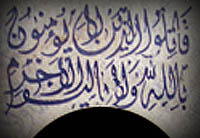 قاتلوا الذين لا يؤمنون
بالله ولا باليوم الآخر